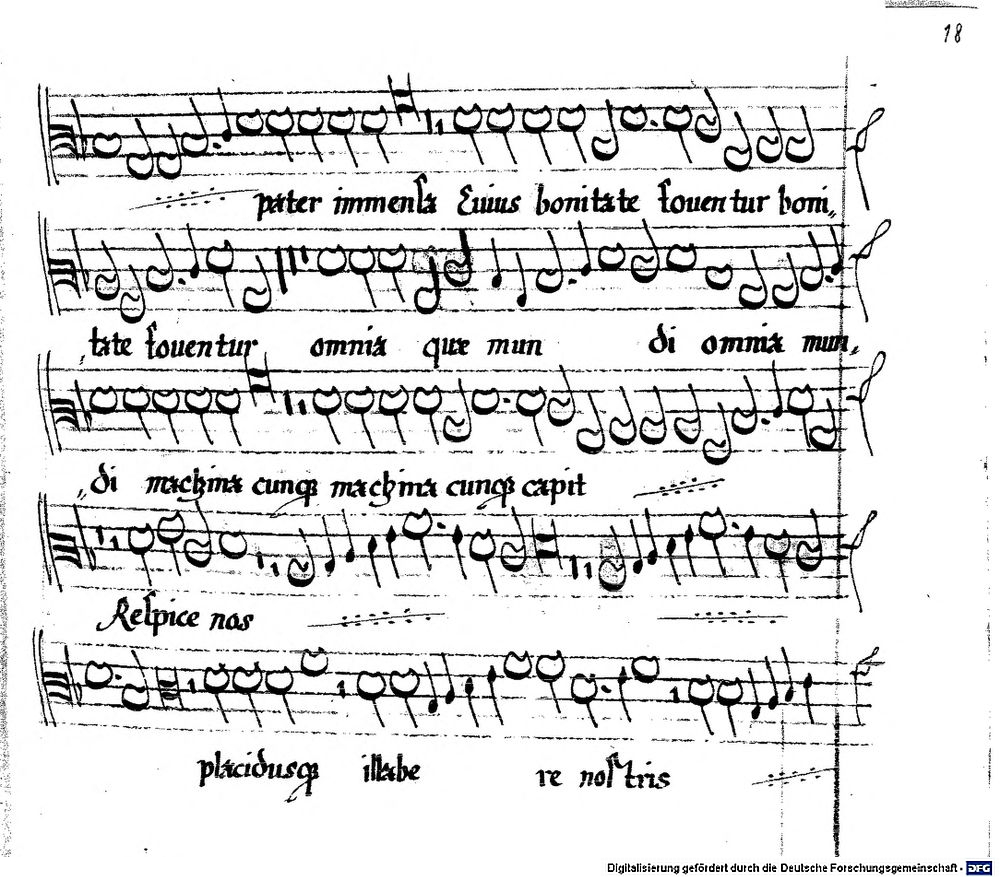 18
pater immensa Cuius bonitate fouentur boni„
„tate fouentur omnia quæ mun di omnia mun„
„di machina cunqꝫ machina cunqꝫ capit
Respice nos
placidusqꝫ illabe re nostris
Digitalisierung gefördert durch die Deutsche Forschungsgemeinschaft - DFG